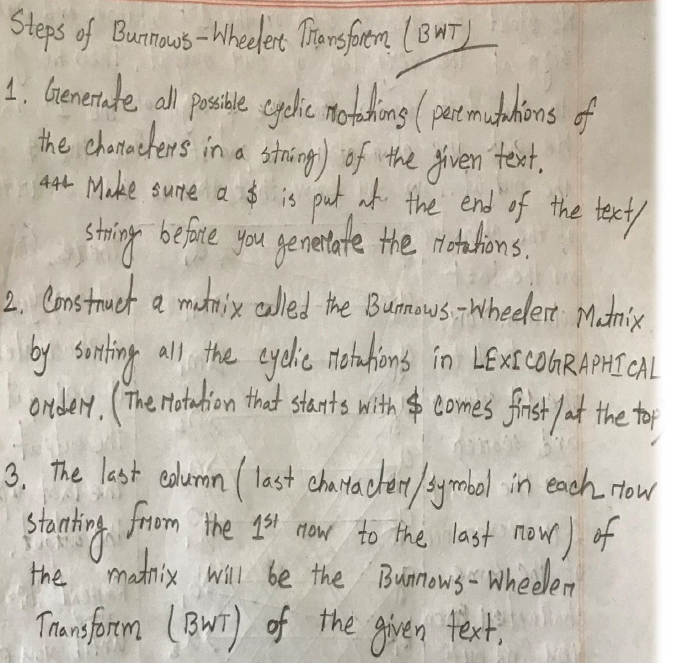 Steps of Burrows-Wheeler Transform (BWT)
1. Generate all possible cyclic rotations (permutations of
the characters in a string) of the given text.
*** Make sure a $ is put at the end of the text/
string before you generate the rotations.
2. Construct a matrix called the Burrows-Wheeler Matrix
by sorting all the cyclic rotations in LEXICOGRAPHICAL
order. (The rotation that starts with $ comes first/at the top
3. The last column (last character/symbol in each row
starting from the 1st row to the last row) of
the matrix will be the Burrows-Wheeler
Transform (BWT) of the given text.